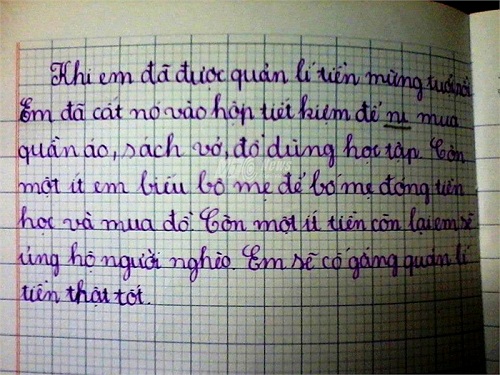 Khi em đã được quản lí tiền mừng tuổi rồi
Em đã cất nó vào hộp tiết kiệm để mua
quần áo, sách vở, đồ dùng học tập. Còn
một ít em biếu bố mẹ để bố mẹ đóng tiền
học và mua đồ. Còn một ít tiền còn lại em sẽ
ủng hộ người nghèo. Em sẽ cố gắng quản lí
tiền thật tốt.